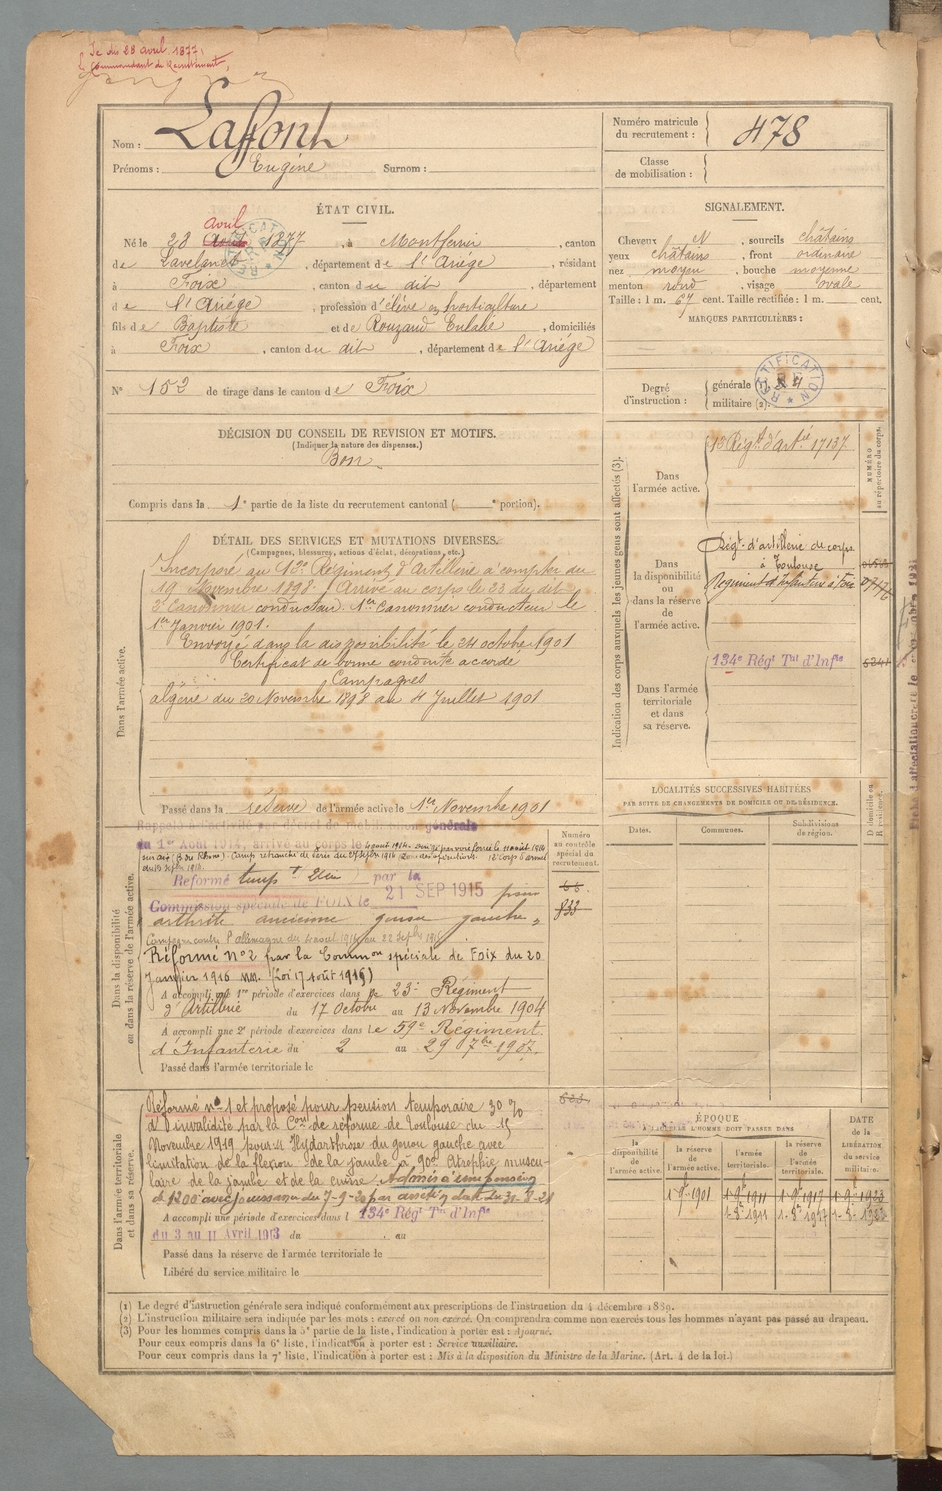 Né le 28 avril 1877,
Commandant de Recrutement,
Nom : Laffont
Prénoms : Eugène Surnom :
Numéro matricule du recrutement : 478
Classe de mobilisation :
ÉTAT CIVIL.
avril
Né le 28 Août 1877, à Montferrier, canton
de Lavelanet, département de l'Ariége, résidant
à Foix, canton du dit, département
de l'Ariége, profession d'élève en horticulture
fils de Baptiste et de Rouzaud Eulalie, domiciliés
à Foix, canton du dit, département de l'Ariége
N° 152 de tirage dans le canton de Foix
SIGNALEMENT.
Cheveux N, sourcils châtains
yeux châtains, front ordinaire
nez moyen, bouche moyenne
menton rond, visage ovale
Taille : 1 m. 67 cent. Taille rectifiée : 1 m. cent.
MARQUES PARTICULIÈRES :
Degré d'instruction : générale
militaire (2)
RECTIFICATION
DÉCISION DU CONSEIL DE REVISION ET MOTIFS.
(Indiquer la nature des dispenses.)
Bon.
Compris dans la 1e partie de la liste du recrutement cantonal ( e portion).
DÉTAIL DES SERVICES ET MUTATIONS DIVERSES.
(Campagnes, blessures, actions d'éclat, décorations, etc.)
Dans l'armée active.
Incorporé au 13e Régiment d'artillerie à compter du
19 Novembre 1898. Arrivé au corps le 23 du dit
2e Canonnier conducteur. 1er Canonnier conducteur le
1er Janvier 1901.
Envoyé dans la disponibilité le 24 octobre 1901
Certificat de bonne conduite accordé
Campagnes
algérie du 20 Novembre 1898 au 4 Juillet 1901
Passé dans la réserve de l'armée active le 1er Novembre 1901
Indication des corps auxquels les jeunes gens sont affectés (3).
NUMÉRO au répertoire du corps.
Dans l'armée active.
13 Régt d'artie 17137
Dans la disponibilité ou dans la réserve de l'armée active.
Régt d'artillerie de corps
à Toulouse
Régiment d'infanterie à Foix
Dans l'armée territoriale et dans sa réserve.
134e Régt Tal d'Infie
LOCALITÉS SUCCESSIVES HABITÉES
PAR SUITE DE CHANGEMENTS DE DOMICILE OU DE RÉSIDENCE.
Dates. Communes. Subdivisions de région. D domicile ou R résidence.
Dans la disponibilité ou dans la réserve de l'armée active.
Numéro au contrôle spécial du recrutement.
Rappelé à l'activité par décret de mobilisation générale
du 1er Août 1914, arrivé au corps le 4 août 1914.
Réformé tempre 2em par la
Commission spéciale de FOIX le 21 SEP 1915 pour
arthrite ancienne genou gauche.
Campagne contre l'allemagne du 4 août 1914 au 22 Septbre 1915
Réformé N°2 par la Common spéciale de Foix du 20
Janvier 1916 (Loi 17 août 1915)
A accompli une 1re période d'exercices dans le 23e Régiment
d'Artillerie du 17 Octobre au 13 Novembre 1904
A accompli une 2e période d'exercices dans le 59e Régiment
d'Infanterie du 2 au 29 7bre 1907.
Passé dans l'armée territoriale le
833
Dans l'armée territoriale et dans sa réserve.
Réformé n° 1 et proposé pour pension temporaire 30 %
d'invalidité par la Con de réforme de Toulouse du 15
Novembre 1919 pour Hydarthrose du genou gauche avec
limitation de la flexion de la jambe à 90° atrophie muscu-
laire de la jambe et de la cuisse. Admis à une pension
A accompli une période d'exercices dans l 134e Régt Tal d'Infie
du 3 au 11 Avril 1913 du au
Passé dans la réserve de l'armée territoriale le
Libéré du service militaire le
ÉPOQUE
À LAQUELLE L'HOMME DOIT PASSER DANS
DATE de la LIBÉRATION du service militaire.
la disponibilité de l'armée active. la réserve de l'armée active. l'armée territoriale. la réserve de l'armée territoriale.
1-9bre 1901 1-9bre 1911 1-9bre 1917
(1) Le degré d'instruction générale sera indiqué conformément aux prescriptions de l'instruction du 4 décembre 1889.
(2) L'instruction militaire sera indiquée par les mots : exercé ou non exercé. On comprendra comme non exercés tous les hommes n'ayant pas passé au drapeau.
(3) Pour les hommes compris dans la 5e partie de la liste, l'indication à porter est : Ajourné.
Pour ceux compris dans la 6e liste, l'indication à porter est : Service auxiliaire.
Pour ceux compris dans la 7e liste, l'indication à porter est : Mis à la disposition du Ministre de la Marine. (Art. 4 de la loi.)